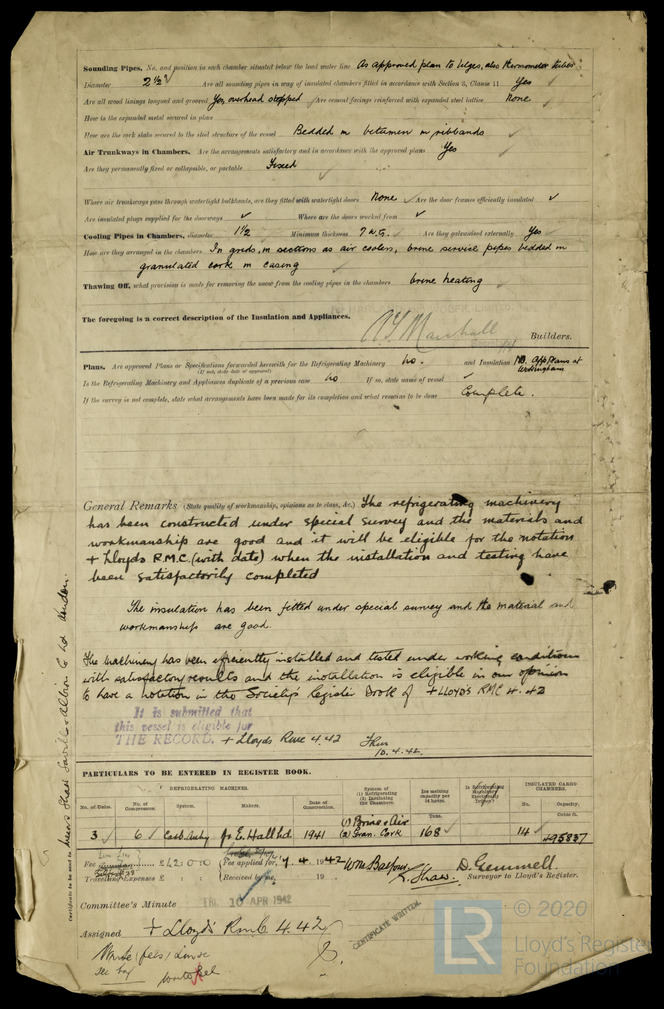 Sounding Pipes, No. and position in each chamber situated below the load water line As approved plan to bilges, also thermometer tubes
Diameter 2½ ✓ Are all sounding pipes in way of insulated chambers fitted in accordance with Section 3, Clause 11 Yes ✓
Are all wood linings tongued and grooved Yes, overhead stopped ✓ Are cement facings reinforced with expanded steel lattice None ✓
How is the expanded metal secured in place
How are the cork slabs secured to the steel structure of the vessel Bedded in bitumen in ribbands ✓
Air Trunkways in Chambers. Are the arrangements satisfactory and in accordance with the approved plans Yes ✓
Are they permanently fixed or collapsible, or portable Fixed ✓
Where air trunkways pass through watertight bulkheads, are they fitted with watertight doors None ✓ Are the door frames efficiently insulated ✓
Are insulated plugs supplied for the doorways ✓ Where are the doors worked from ✓
Cooling Pipes in Chambers, diameter 1½ Minimum thickness 7 W.G. ✓ Are they galvanised externally Yes ✓
How are they arranged in the chambers In grids, in sections as air coolers, brine service pipes bedded in
granulated cork in casing ✓
Thawing Off, what provision is made for removing the snow from the cooling pipes in the chambers brine heating ✓
The foregoing is a correct description of the Insulation and Appliances.
Marshall Builders.
Plans. Are approved Plans or Specifications forwarded herewith for the Refrigerating Machinery No. and Insulation NB. App Plans at
(If not, state date of approval) Wokingham
Is the Refrigerating Machinery and Appliances duplicate of a previous case no If so, state name of vessel ✓
If the survey is not complete, state what arrangements have been made for its completion and what remains to be done Complete.
General Remarks (State quality of workmanship, opinions as to class, &c.) The refrigerating machinery
has been constructed under special survey and the materials and
workmanship are good and it will be eligible for the notation
+ Lloyds R.M.C. (with date) when the installation and testing have
been satisfactorily completed
The insulation has been fitted under special survey and the material and
workmanship are good.
The machinery has been efficiently installed and tested under working conditions
with satisfactory results and the installation is eligible in our opinion
to have a notation in the Society's Register Book of + LLOYD'S RMC 4.42
It is submitted that
this vessel is eligible for
THE RECORD. + Lloyds RMC 4.42
10.4.42.
Certificate to be sent to Messrs Shaw Savill & Albion Co Ltd London.
PARTICULARS TO BE ENTERED IN REGISTER BOOK.
REFRIGERATING MACHINES.
No. of Units. No. of Compressors. System. Makers. Date of Construction. System of (1) Refrigerating (2) Insulating the Chambers. Ice melting capacity per 24 hours. Is Refrigerating Machinery Electrically Driven? INSULATED CARGO CHAMBERS. No. Capacity.
Tons. Cubic ft.
(1) Brine & Air
3 ✓ 6 ✓ Carb. Anhy J & E. Hall Ld 1941 (2) Gran. Cork 168 ✓ 14 ✓ 495837
Fee £42:0:0 Fee applied for, 7.4.1942 Wm Balfour D. Gemmell.
Travelling Expenses £ : : Received by me, 19 . Surveyor to Lloyd's Register.
Committee's Minute FRI. 10 APR 1942
Assigned + Lloyd's RMC 4.42
CERTIFICATE WRITTEN.
LR
© 2020
Lloyd's Register
Foundation